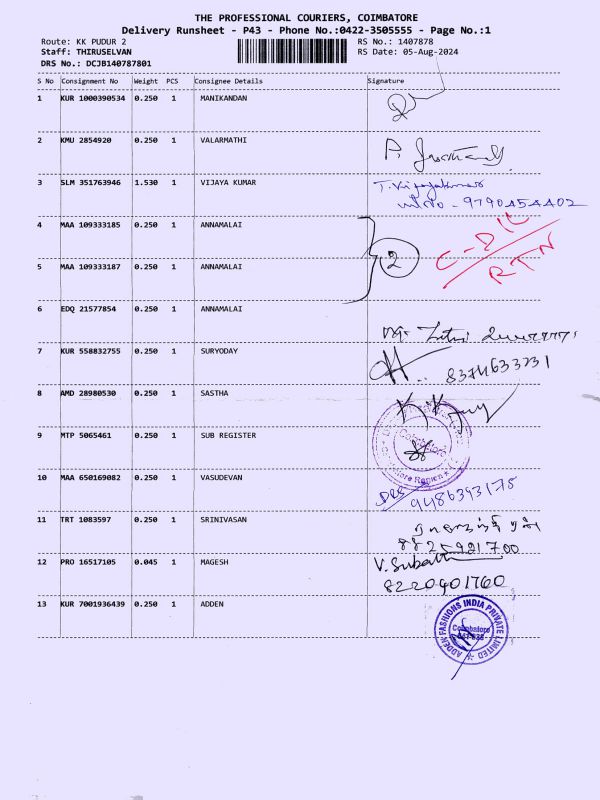 THE PROFESSIONAL COURIERS, COIMBATORE
Delivery Runsheet - P43 - Phone No.:0422-3505555 - Page No.:1
Route: KK PUDUR 2 RS No.: 1407878
Staff: THIRUSELVAN RS Date: 05-Aug-2024
DRS No.: DCJB140787801
S No Consignment No Weight PCS Consignee Details Signature
1 KUR 1000390534 0.250 1 MANIKANDAN
2 KMU 2854920 0.250 1 VALARMATHI
P.
3 SLM 351763946 1.530 1 VIJAYA KUMAR
T. Vijayakumar
9790454402
4 MAA 109333185 0.250 1 ANNAMALAI
5 MAA 109333187 0.250 1 ANNAMALAI
2
RTN
6 EDQ 21577854 0.250 1 ANNAMALAI
7 KUR 558832755 0.250 1 SURYODAY
8374633231
8 AMD 28980530 0.250 1 SASTHA
9 MTP 5065461 0.250 1 SUB REGISTER
Coimbatore
10 MAA 650169082 0.250 1 VASUDEVAN
9486393178
11 TRT 1083597 0.250 1 SRINIVASAN
8825921700
12 PRO 16517105 0.045 1 MAGESH
V. Subath
8220401760
13 KUR 7001936439 0.250 1 ADDEN
ADDEN FASHIONS INDIA PRIVATE LIMITED
Coimbatore